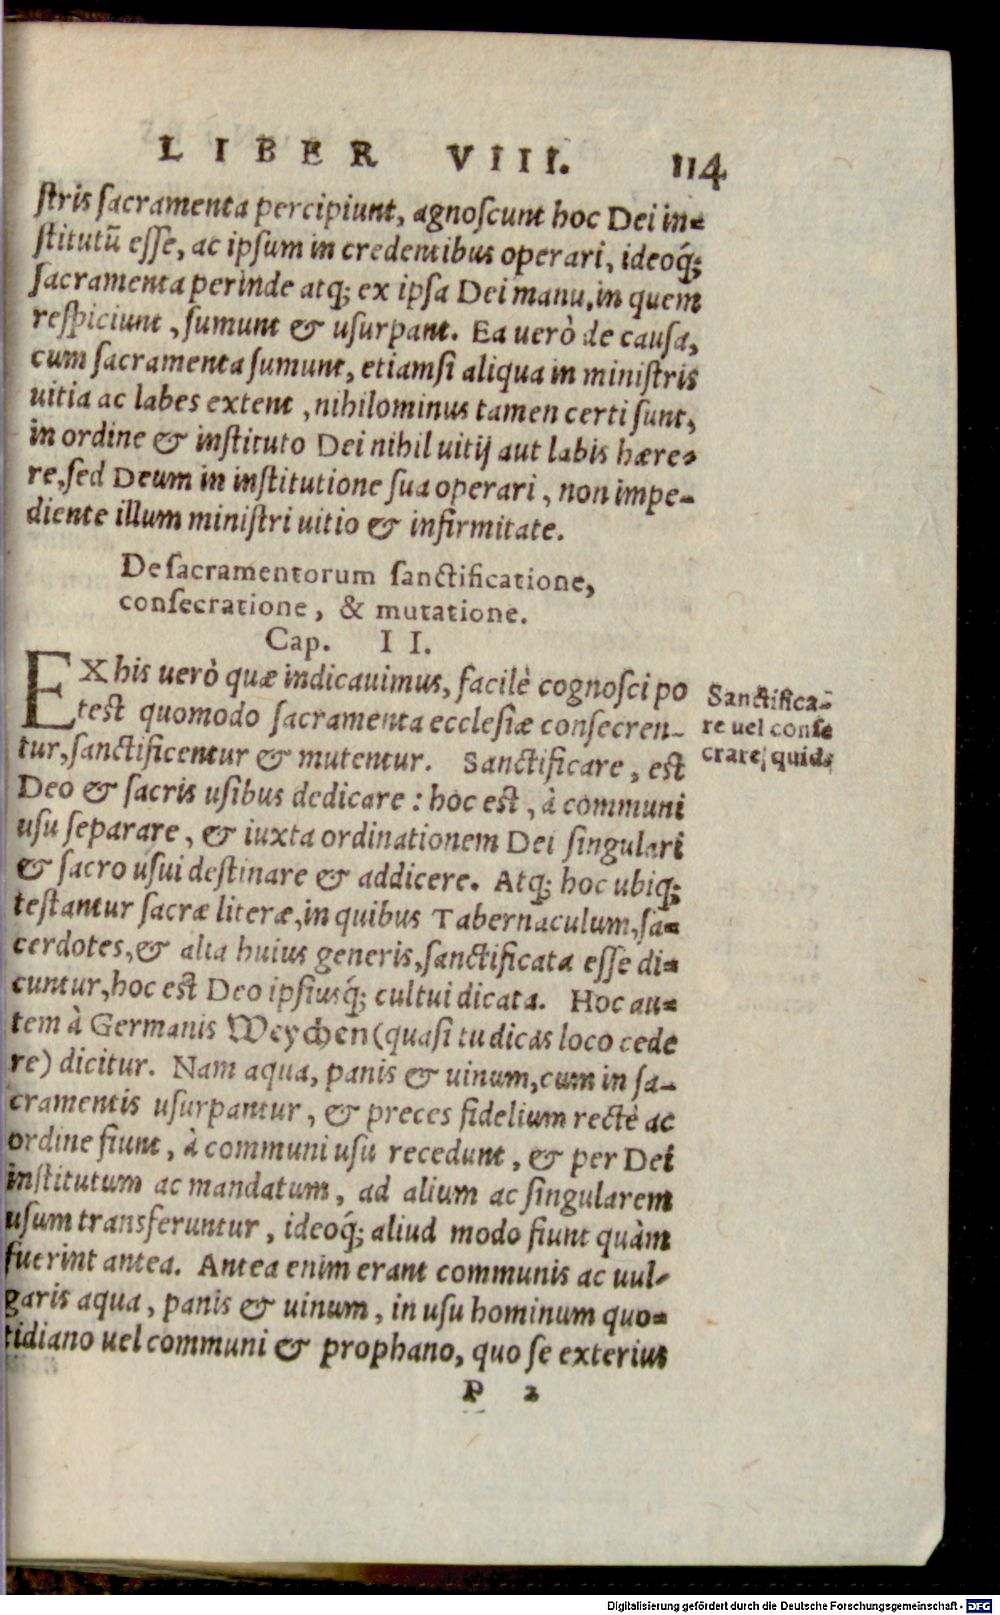 LIBER VIII. 114
ſtris ſacramenta percipiunt, agnoſcunt hoc Dei in-
ſtitutū eſſe, ac ipſum in credentibus operari, ideoq́;
ſacramenta perinde atq; ex ipſa Dei manu, in quem
reſpiciunt, ſumunt & uſurpant. Ea uerò de cauſa,
cum ſacramenta ſumunt, etiamſi aliqua in miniſtris
uitia ac labes extent, nihilominus tamen certi ſunt,
in ordine & inſtituto Dei nihil uitij aut labis hære-
re, ſed Deum in inſtitutione ſua operari, non impe-
diente illum miniſtri uitio & infirmitate.
De ſacramentorum ſanctificatione,
conſecratione, & mutatione.
Cap. II.
EX his uerò quæ indicauimus, facilè cognoſci po
teſt quomodo ſacramenta eccleſiæ conſecren-
tur, ſanctificentur & mutentur. Sanctificare, eſt
Deo & ſacris uſibus dedicare: hoc eſt, à communi
uſu ſeparare, & iuxta ordinationem Dei ſingulari
& ſacro uſui deſtinare & addicere. Atq; hoc ubiq;
teſtantur ſacræ literæ, in quibus Tabernaculum, ſa-
cerdotes, & alia huius generis, ſanctificata eſſe di-
cuntur, hoc eſt Deo ipſiusq́; cultui dicata. Hoc au-
tem à Germanis Weychen (quaſi tu dicas loco cede
re) dicitur. Nam aqua, panis & uinum, cum in ſa-
cramentis uſurpantur, & preces fidelium rectè ac
ordine fiunt, à communi uſu recedunt, & per Dei
inſtitutum ac mandatum, ad alium ac ſingularem
uſum transferuntur, ideoq́; aliud modo fiunt quàm
fuerint antea. Antea enim erant communis ac uul-
garis aqua, panis & uinum, in uſu hominum quo-
tidiano uel communi & prophano, quo ſe exterius
P 2
Sanctifica-
re uel conſe
crare, quid.
Digitalisierung gefördert durch die Deutsche Forschungsgemeinschaft - DFG